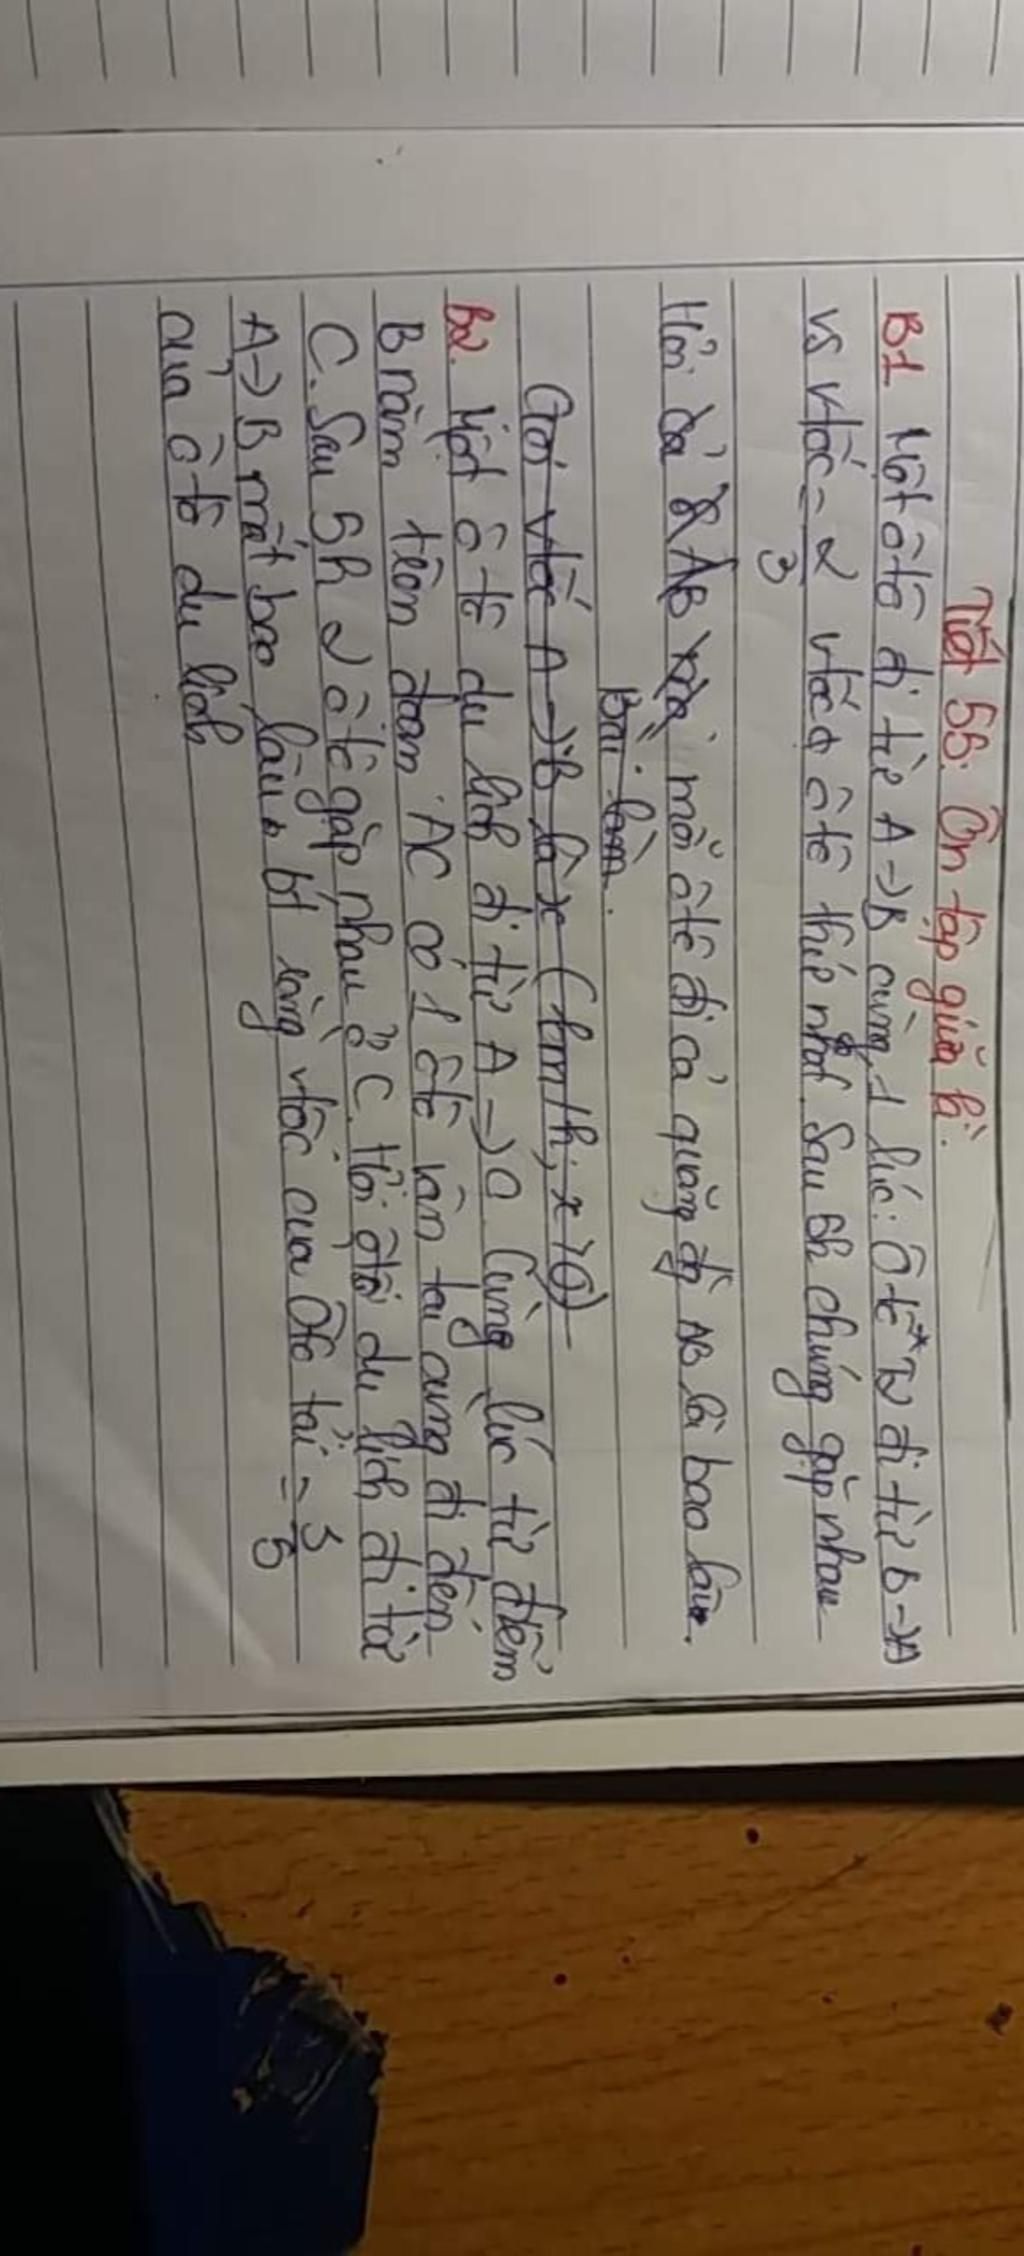 Tiết 55. Ôn tập giữa kì.
B1 Một ô tô đi từ A→B cùng 1 lúc. Ô tô T2 đi từ B→A
vs vtốc = 2/3 vtốc ô tô thứ nhất. Sau 5h chúng gặp nhau
Hỏi cả AB mỗi ô tô đi cả quãng đg AB là bao lâu.
Bài làm.
Gọi vtốc A→B là x (km/h; x>0)
B2. Một ô tô du lịch đi từ A→C. Cùng lúc từ điểm
B nằm trên đoạn AC có 1 ô tô vận tải cùng đi đến
C. Sau 5h 2 ô tô gặp nhau ở C. Hỏi ô tô du lịch đi từ
A→B mất bao lâu, bt rằng vtốc của ôtô tải = 3/5
của ô tô du lịch